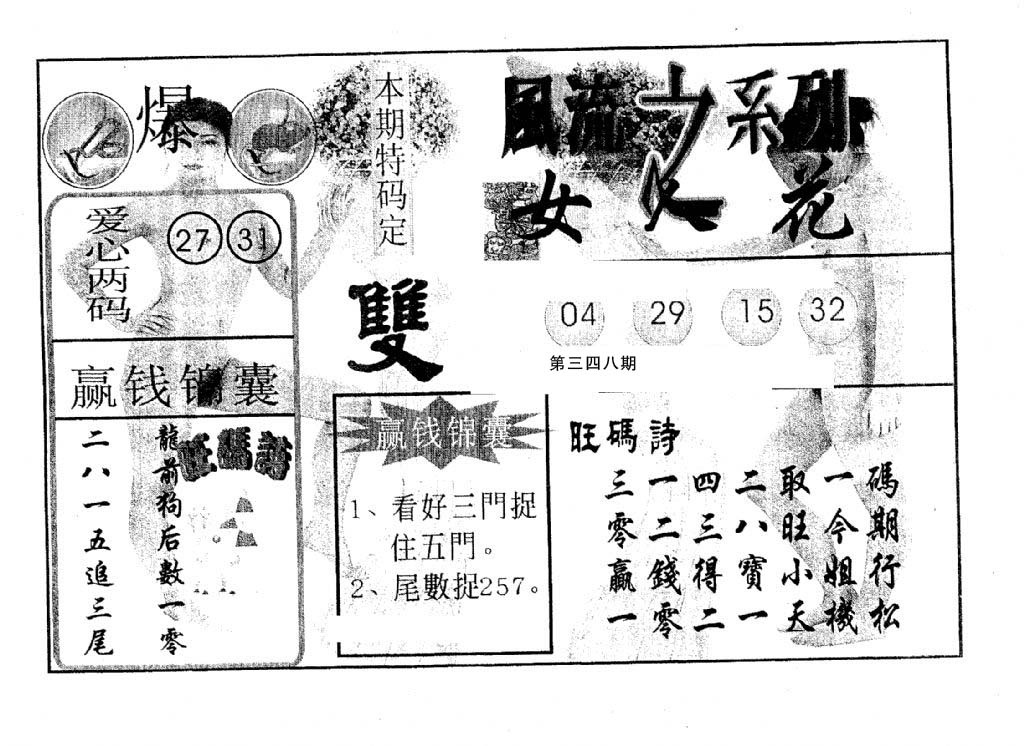 爆
爱心两码
27 31
赢钱锦囊
旺碼詩
龍前狗后數一零
二八一五追三尾
本期特码定
雙
风流之系列
女人花
04 29 15 32
第三四八期
赢钱锦囊
1、看好三門捉
住五門。
2、尾數捉257。
旺碼詩
三一四二取一碼
零二三八旺今期
贏錢得寶小姐行
一零二一天機松